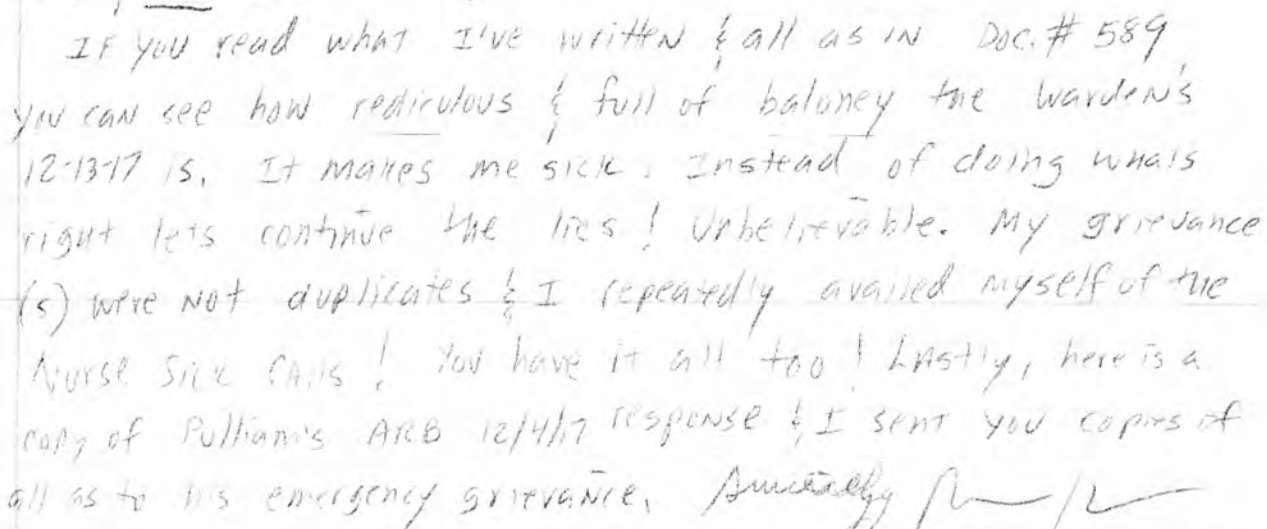 If you read what I've written & all as in Doc. # 589,
you can see how rediculous & full of baloney the Warden's
12-13-17 is. It makes me sick. Instead of doing whats
right lets continue the lies! Unbelievable. My grievance
(s) were not duplicates & I repeatedly availed myself of the
Nurse Sick Calls! You have it all too! Lastly, here is a
copy of Pulliam's ARB 12/4/17 response & I sent you copies of
all as to his emergency grievance. Sincerely